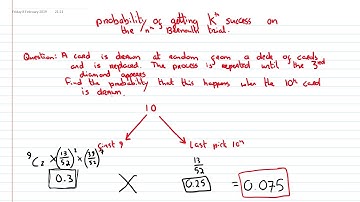 Friday 8 February 2019 21:23
probability of getting Kth success on
the "nth" Bernoulli trial.
Question: A card is drawn at random from a deck of cards
and is replaced. The process is repeated until the 3rd
diamond appears
Find the probability that this happens when the 10th card
is drawn.
10
first 9
Last pick 10th
9C2 × (13/52)² × (39/52)⁷
13/52
0.3 × 0.25 = 0.075